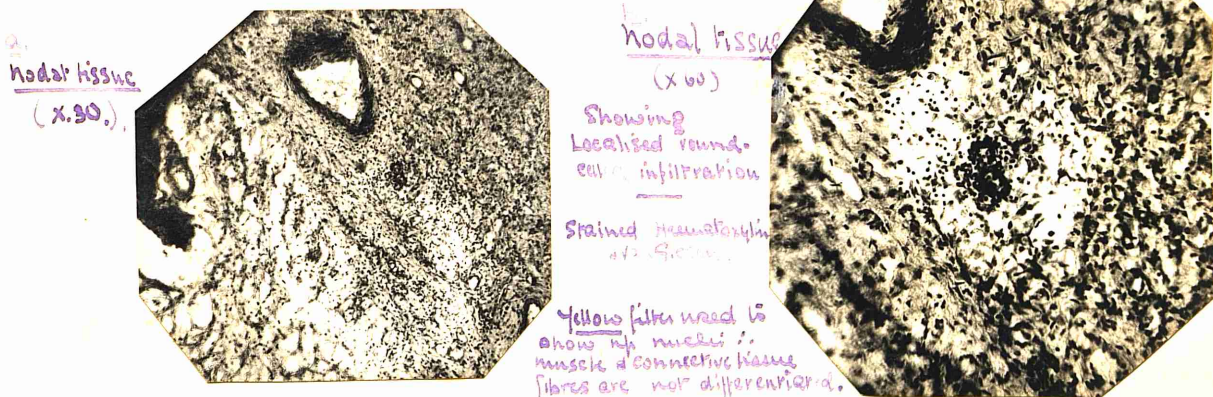 a.
nodal tissue
(X.30.)
Nodal tissue
(X 60)
Showing
Localised round-
cell infiltration
Stained Haematoxylin
Yellow filter used to
show up nuclei ∴
muscle & connective tissue
fibres are not differentiated.